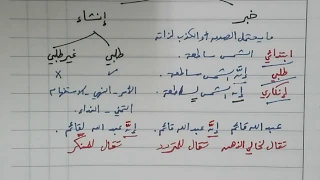 خبر إنشاء
ما يحتمل الصدق أو الكذب لذاته
طلبي غير طلبي
ابتدائي الشمس ساطعة
طلبي إنَّ الشمس ساطعة.
إنكاري إنَّ الشمس لساطعة.
الأمر - النهي - الاستفهام
التمني - النداء.
عبد الله قائم إنَّ عبد الله قائم. إنَّ عبد الله لقائم.
تقال لخالي الذهن تقال للمتردد تقال للمنكر